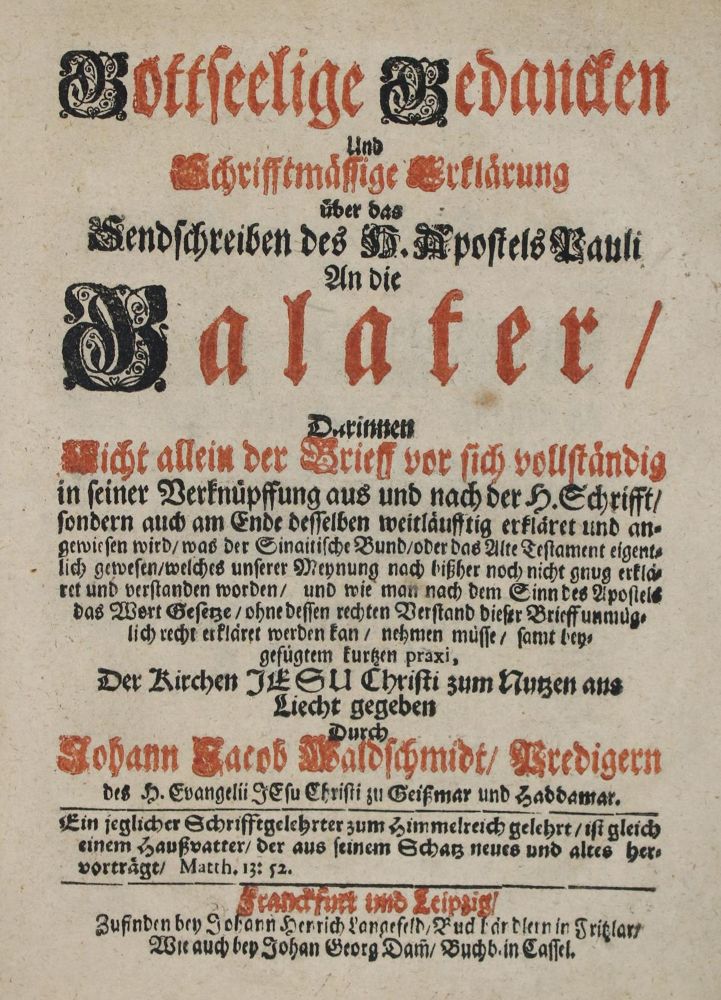 Gottseelige Gedancken
Und
Schrifftmässige Erklärung
über das
Sendschreiben des H. Apostels Pauli
An die
Galater/
Darinnen
Nicht allein der Brieff vor sich vollständig
in seiner Verknüpffung aus und nach der H. Schrifft/
sondern auch am Ende desselben weitläufftig erkläret und an-
gewiesen wird/ was der Sinaitische Bund/ oder das Alte Testament eigent-
lich gewesen/ welches unserer Meynung nach bißher noch nicht gnug erklä-
ret und verstanden worden/ und wie man nach dem Sinn des Apostels
das Wort Gesetze/ ohne dessen rechten Verstand dieser Brieff unmüg-
lich recht erkläret werden kan/ nehmen müsse/ samt bey-
gefügtem kurtzen praxi,
Der Kirchen JESU Christi zum Nutzen ans
Liecht gegeben
Durch
Johann Jacob Waldschmidt/ Predigern
des H. Evangelii JEsu Christi zu Geißmar und Haddamar.
Ein jeglicher Schrifftgelehrter zum Himmelreich gelehrt/ ist gleich
einem Haußvatter/ der aus seinem Schatz neues und altes her-
vorträgt/ Matth. 13: 52.
Franckfurt und Leipzig/
Zufinden bey Johann Henrich Langefeld/ Buchhändlern in Fritzlar/
Wie auch bey Johan Georg Dam̃/ Buchb. in Cassel.